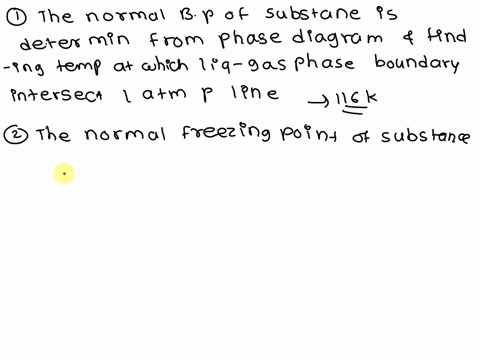 ① The normal B.p of substane is
determin from phase diagram & find
-ing temp at which liq-gas phase boundary
intersect 1 atm p line → 116 k
② The normal freezing point of substance